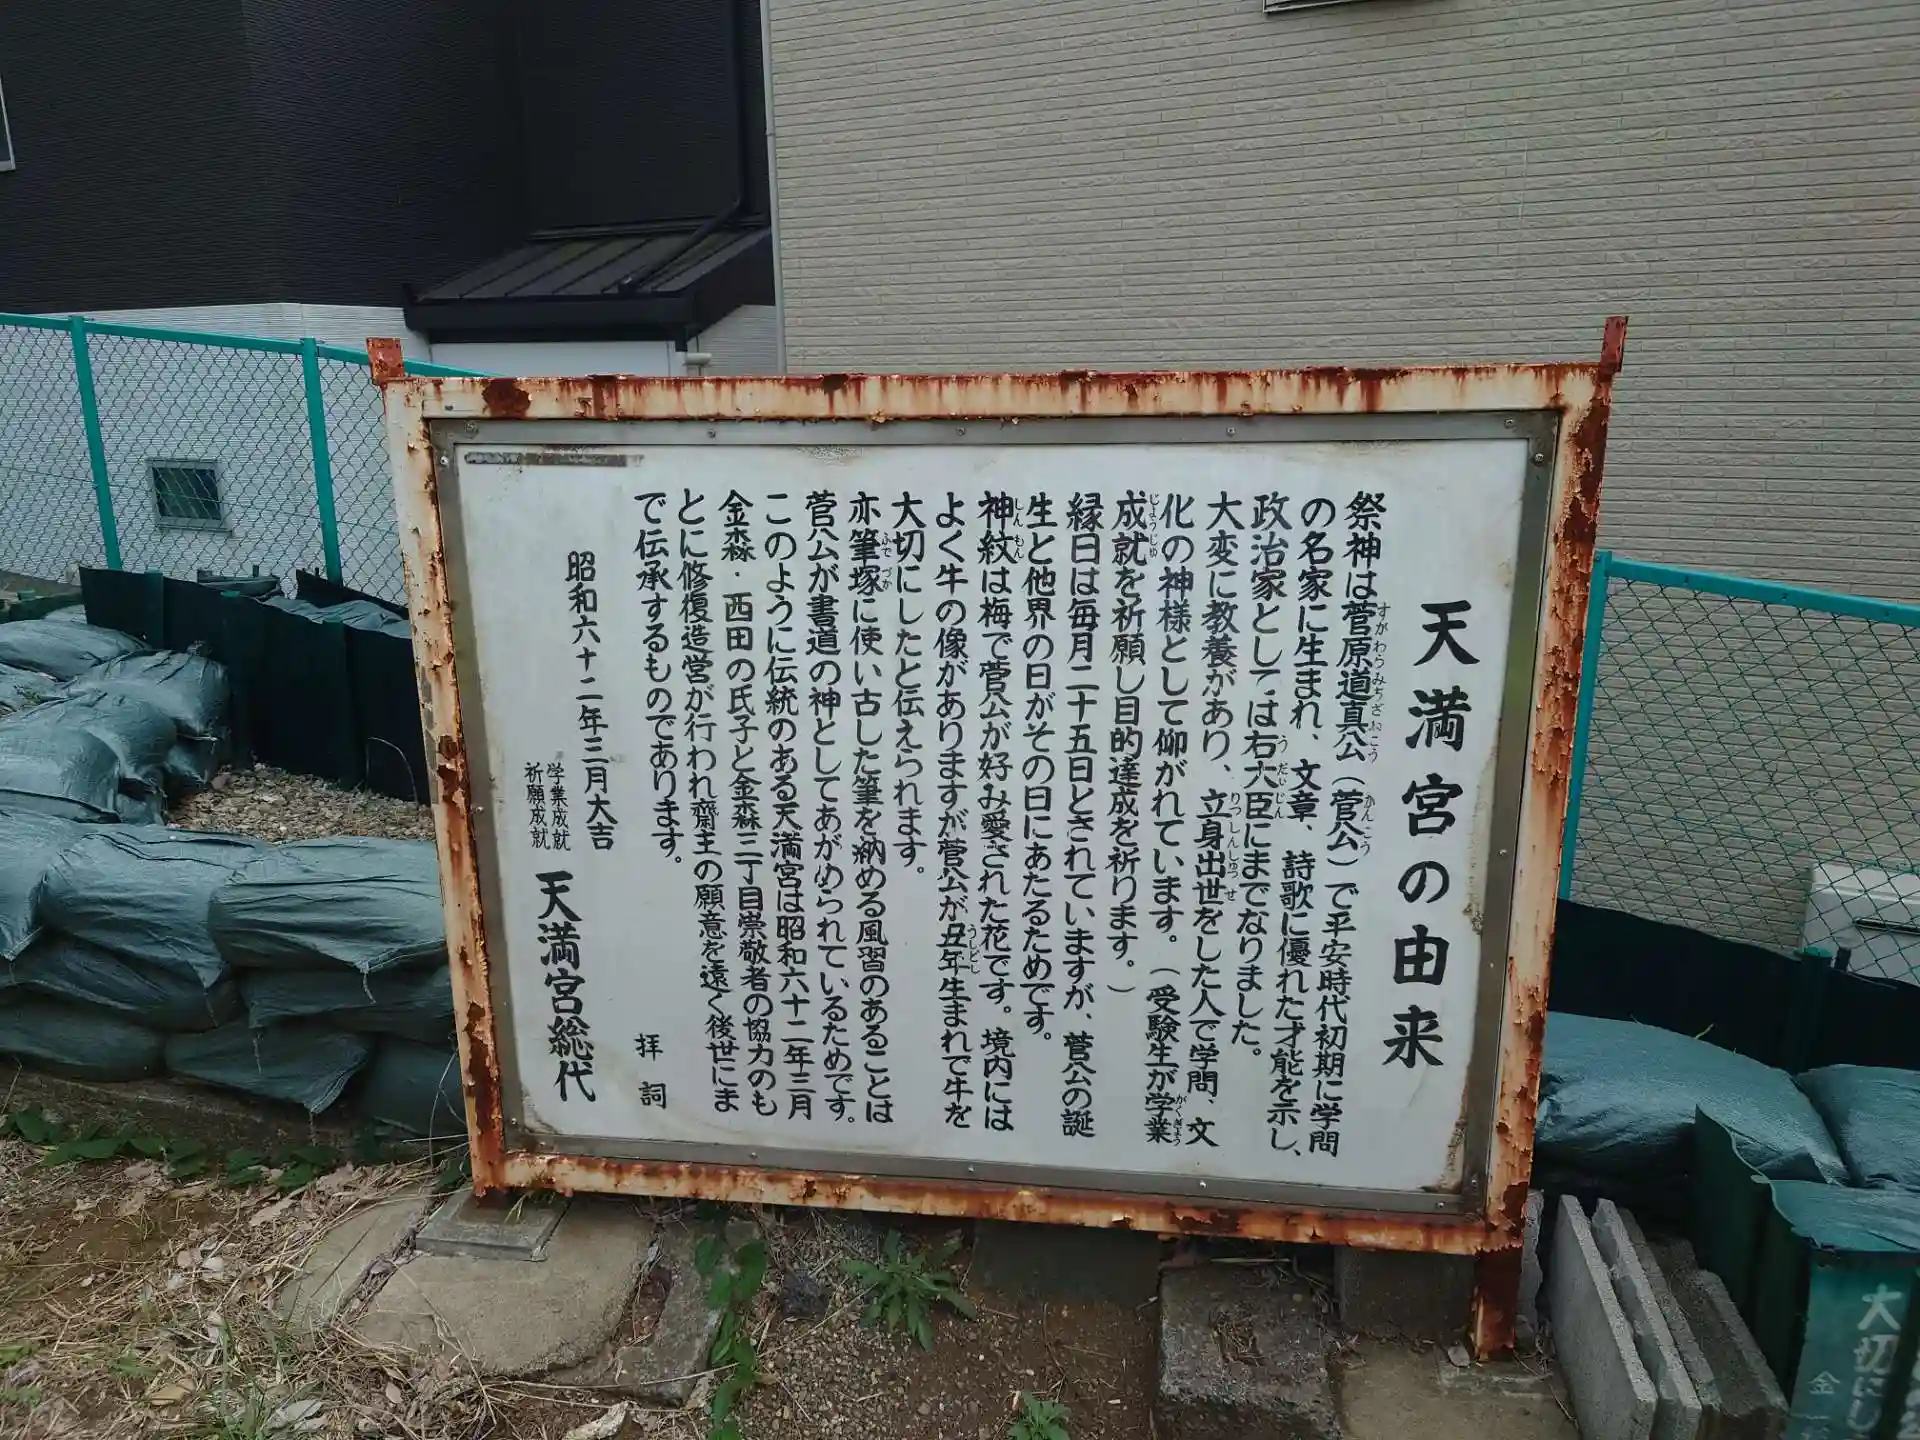 天満宮の由来
祭神は菅原道真公（菅公）で平安時代初期に学問
の名家に生まれ、文章、詩歌に優れた才能を示し、
政治家としては右大臣にまでなりました。
大変に教養があり、立身出世をした人で学問、文
化の神様として仰がれています。（受験生が学業
成就を祈願し目的達成を祈ります。）
縁日は毎月二十五日とされていますが、菅公の誕
生と他界の日がその日にあたるためです。
神紋は梅で菅公が好み愛された花です。境内には
よく牛の像がありますが菅公が丑年生まれで牛を
大切にしたと伝えられます。
亦筆塚に使い古した筆を納める風習のあることは
菅公が書道の神としてあがめられているためです。
このように伝統のある天満宮は昭和六十二年三月
金森・西田の氏子と金森三丁目崇敬者の協力のも
とに修復造営が行われ齋主の願意を遠く後世にま
で伝承するものであります。
拝詞
昭和六十二年三月大吉
学業成就
祈願成就
天満宮総代
すがわらみちざねこう
かんこう
うだいじん
りっしんしゅっせ
がくぎょう
じょうじゅ
しんもん
うしどし
ふでづか
大切にし
金